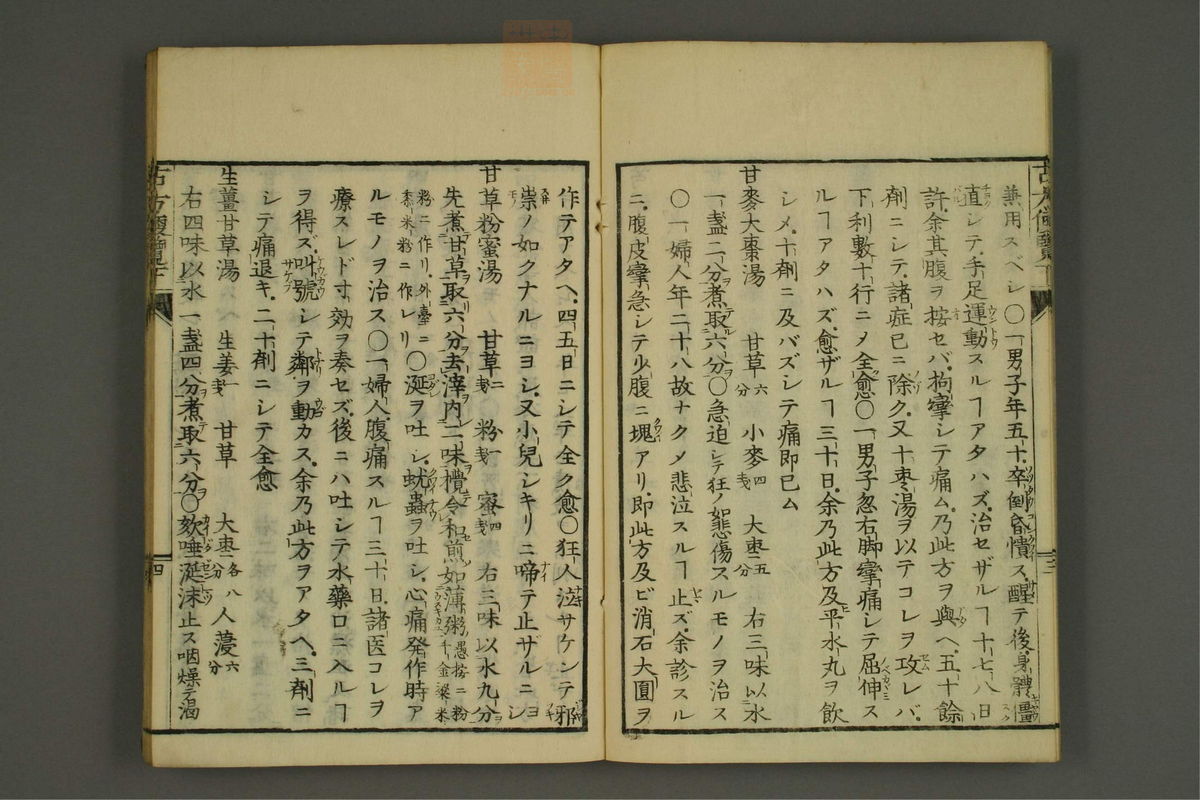 兼用スベシ〇一男子年五十卒倒昏憒ス醒テ後身體僵
直シテ手足運動スルヿアタハズ治セザルヿ十七八日
許余其腹ヲ按セバ拘攣シテ痛ム乃此方ヲ與ヘ五十餘
劑ニシテ諸症已ニ除ク又十棗湯ヲ以テコレヲ攻レバ
下利數十行ニメ全愈〇一男子忽右脚攣痛シテ屈伸ス
ルヿアタハズ愈ザルヿ三十日余乃此方及平水丸ヲ飲
シメ十劑ニ及バズシテ痛即已ム
甘麥大棗湯 甘草六分 小麥四戔 大棗二分五 右三味以水
一盞二分煮取六分〇急迫シテ狂ノ如悲傷スルモノヲ治ス
〇一婦人年二十八故ナクメ悲泣スルヿ止ズ余診スル
ニ腹皮攣急シテ少腹ニ塊アリ即此方及ビ消石大圓ヲ
作テアタヘ四五日ニシテ全ク愈〇狂人泣サケンテ邪
祟ノ如クナルニヨシ又小兒シキリニ啼テ止ザルニヨシ
甘草粉蜜湯 甘草二戔 粉一戔 蜜四戔 右三味以水九分
先煮甘草取六分去滓内二味攪令和煎如薄粥愚按ニ粉千金粱米
粉ニ作リ外臺ニ黍米粉ニ作レリ〇涎ヲ吐シ蚘蟲ヲ吐シ心痛発作時ア
ルモノヲ治ス〇一婦人腹痛スルヿ三十日諸医コレヲ
療スレド寸効ヲ奏セズ後ニハ吐シテ水藥口ニ入ルヿ
ヲ得ズ叫號シテ鄰ヲ動カス余乃此方ヲアタヘ三劑ニ
シテ痛退キ二十劑ニシテ全愈
生薑甘草湯 生姜一戔 甘草 大棗各八分 人薓六分
右四味以水一盞四分煮取六分〇欬唾涎沫止ス咽燥テ渇
古方便覽下
三
古方便覽下
四